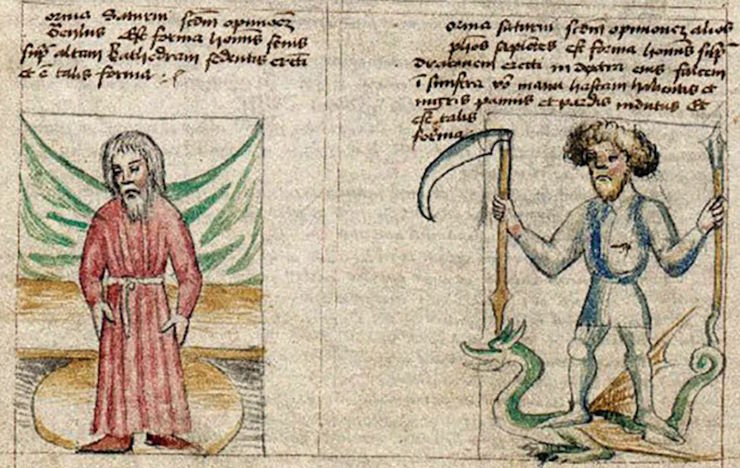 orma Saturni scdm opinionez
Beylus Est forma hominis senis
sup altam kathedram sedentis erecti
et e talis forma
orma saturni scdm opinionez alios
sapietes est forma hominis sup
draconem erecti in dextra eius falcem
i sinistra vo manu hastam habentis et
nigris pannis et pardis indutus Et
est talis
forma